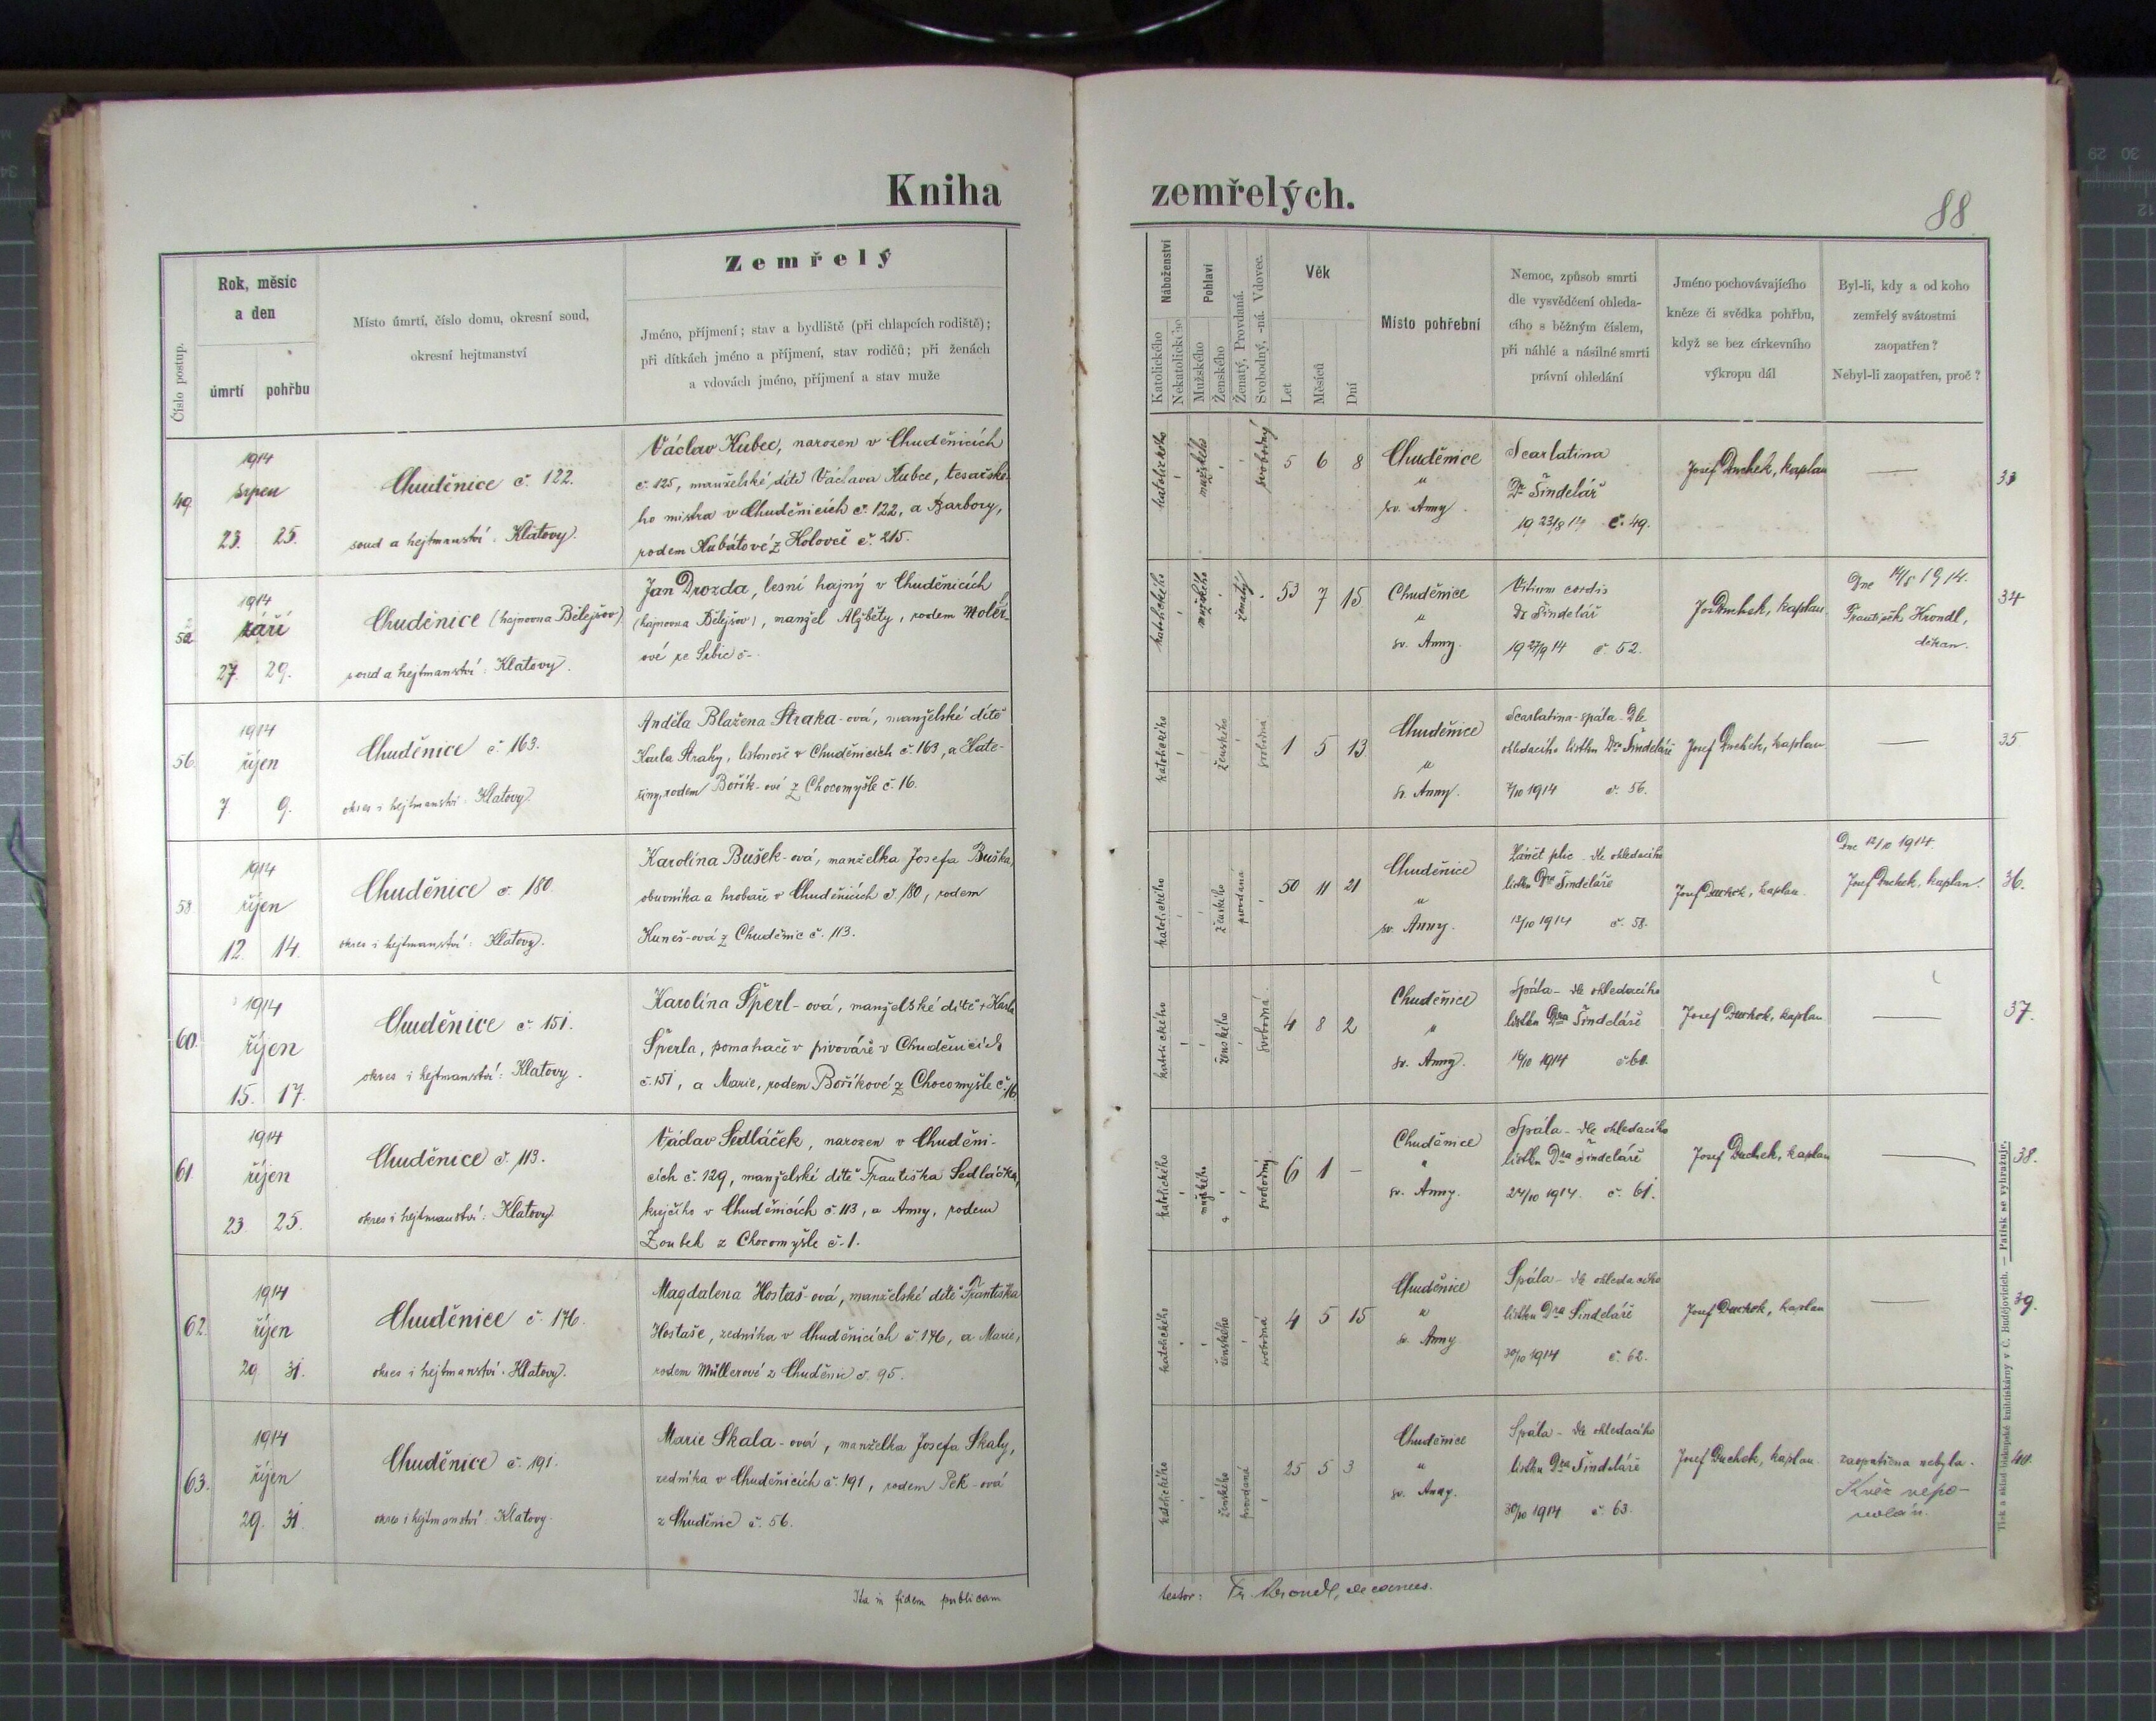 Kniha zemřelých.
88
Číslo postup.
Rok, měsíc
a den
úmrtí pohřbu
Místo úmrtí, číslo domu, okresní soud,
okresní hejtmanství
Zemřelý
Jméno, příjmení; stav a bydliště (při chlapcích rodiště);
při dítkách jméno a příjmení, stav rodičů; při ženách
a vdovách jméno, příjmení a stav muže
Náboženství
Katolického
Nekatolického
Pohlaví
Mužského
Ženského
Ženatý, Provdaná.
Svobodný, -ná. Vdovec.
Věk
Let
Měsíců
Dní
Místo pohřební
Nemoc, způsob smrti
dle vysvědčení ohleda-
cího s běžným číslem,
při náhlé a násilné smrti
právní ohledání
Jméno pochovávajícího
kněze či svědka pohřbu,
když se bez církevního
výkropu dál
Byl-li, kdy a od koho
zemřelý svátostmi
zaopatřen?
Nebyl-li zaopatřen, proč?
49.
1914
srpen
23. 25.
Chuděnice č. 122.
soud a hejtmanství: Klatovy.
Václav Kubec, narozen v Chuděnicích
č. 125, manželské dítě Václava Kubce, tesařské-
ho mistra v Chuděnicích č. 122, a Barbory,
rodem Kubátové z Koloveč č. 215.
katolického
mužského
svobodný
5 6 8
Chuděnice
"
sv. Anny.
Scarlatina
Dr Šindelář
19 23/8 14 č. 49.
Josef Duchek, kaplan
—
33
52
1914
září
27. 29.
Chuděnice (hajnovna Bělejšov)
soud a hejtmanství: Klatovy.
Jan Drozda, lesní hajný v Chuděnicích
(hajnovna Bělejšov), manžel Alžběty, rodem Molér-
ové ze Srbic č.-
katolického
mužského
ženatý
53 7 15
Chuděnice
"
sv. Anny.
Vitium cordis
Dr Šindelář
19 27/9 14 č. 52.
Jos Duchek, kaplan
Dne 14/8 1914.
František Krondl,
děkan.
34
56.
1914
říjen
7. 9.
Chuděnice č. 163.
okres i hejtmanství: Klatovy.
Anděla Blažena Straka-ová, manželské dítě
Karla Straky, listonoše v Chuděnicích č. 163, a Kate-
řiny, rodem Bořík-ové z Chocomyšle č. 16.
katolického
ženského
svobodná
1 5 13
Chuděnice
"
sv. Anny.
Scarlatina-spála-Dle
ohledacího lístku Dra Šindeláře
7/10 1914 č. 56.
Josef Duchek, kaplan
—
35
58.
1914
říjen
12. 14.
Chuděnice č. 180
okres i hejtmanství: Klatovy.
Karolína Bušek-ová, manželka Josefa Buška,
obuvníka a hrobaře v Chuděnicích č. 180, rodem
Kuneš-ová z Chuděnic č. 113.
katolického
ženského
provdaná
50 11 21
Chuděnice
"
sv. Anny.
Zánět plic - dle ohledacího
lístku Dra Šindeláře
12/10 1914 č. 58.
Josef Duchek, kaplan.
Dne 12/10 1914.
Josef Duchek, kaplan.
36.
60.
1914
říjen
15. 17.
Chuděnice č. 151.
okres i hejtmanství: Klatovy.
Karolína Šperl-ová, manželské dítě + Karla
Šperla, pomahače v pivováře v Chuděnicích
č. 151, a Marie, rodem Boříkové z Chocomyšle č. 16
katolického
ženského
svobodná
4 8 2
Chuděnice
"
sv. Anny.
Spála - dle ohledacího
lístku Dra Šindeláře
16/10 1914 č. 60.
Josef Duchek, kaplan
—
37.
61.
1914
říjen
23 25.
Chuděnice č. 113.
okres i hejtmanství: Klatovy.
Václav Sedláček, narozen v Chuděni-
cích č. 129, manželské dítě Františka Sedláčka,
krejčího v Chuděnicích č. 113, a Anny, rodem
Zoubek z Chocomyšle č. 1.
katolického
mužského
svobodný
6 1 -
Chuděnice
"
sv. Anny.
Spála - dle ohledacího
lístku Dra Šindeláře
24/10 1914. č. 61.
Josef Duchek, kaplan
—
38.
62.
1914
říjen
29 31.
Chuděnice č. 176.
okres i hejtmanství: Klatovy.
Magdalena Hostaš-ová, manželské dítě Františka
Hostaše, zedníka v Chuděnicích č. 176, a Marie,
rodem Müllerové z Chuděnic č. 95.
katolického
ženského
svobodná
4 5 15
Chuděnice
"
sv. Anny
Spála - dle ohledacího
lístku Dra Šindeláře
30/10 1914 č. 62.
Josef Duchek, kaplan
—
39.
63.
1914
říjen
29. 31
Chuděnice č. 191.
okres i hejtmanství: Klatovy.
Marie Skala-ová, manželka Josefa Skaly,
zedníka v Chuděnicích č. 191, rodem Pek-ová
z Chuděnic č. 56.
katolického
ženského
provdaná
25 5 3
Chuděnice
"
sv. Anny.
Spála - dle ohledacího
lístku Dra Šindeláře
30/10 1914 č. 63.
Josef Duchek, kaplan.
zaopatřena nebyla.
Kněz nepo-
volán.
40.
Ita in fidem publicam
testor: Fr. Krondl, decanus.
Tisk a sklad biskupské knihtiskárny v Č. Budějovicích. — Patisk se vyhražuje.